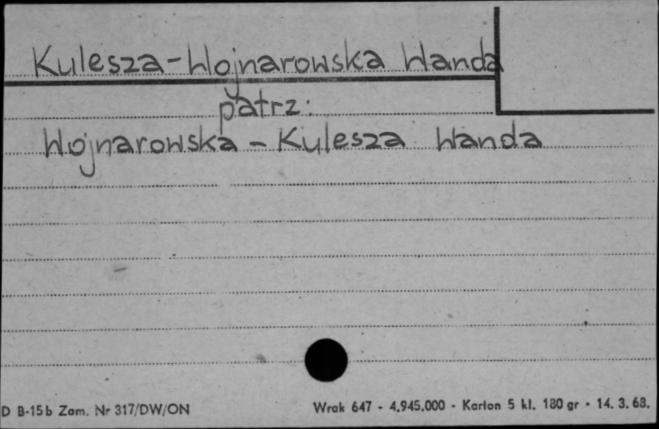 Kulesza-Wojnarowska Wanda
patrz:
Wojnarowska - Kulesza Wanda
D B-15b Zam. Nr 317/DW/ON Wrak 647 - 4.945.000 - Karton 5 kl. 180 gr - 14. 3. 68.